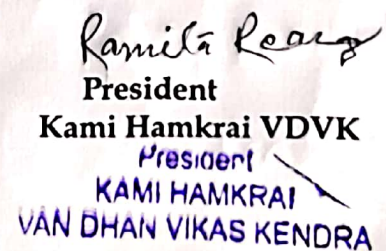 Ramita Reang
President
Kami Hamkrai VDVK
President
KAMI HAMKRAI
VAN DHAN VIKAS KENDRA